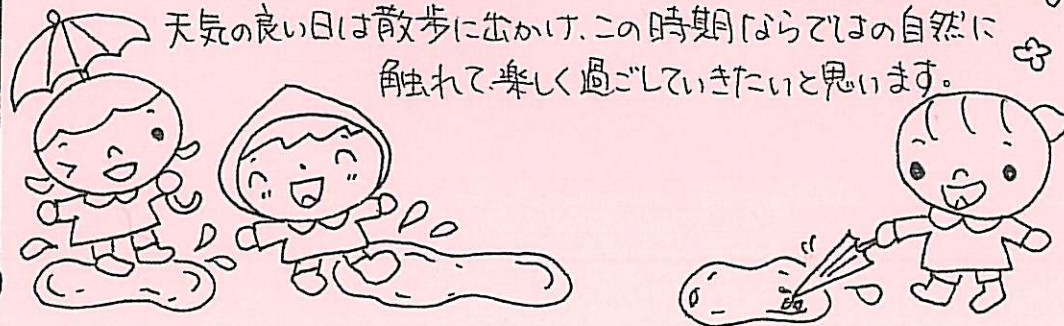 天気の良い日は散歩に出かけ、この時期ならではの自然に
触れて楽しく過ごしていきたいと思います。